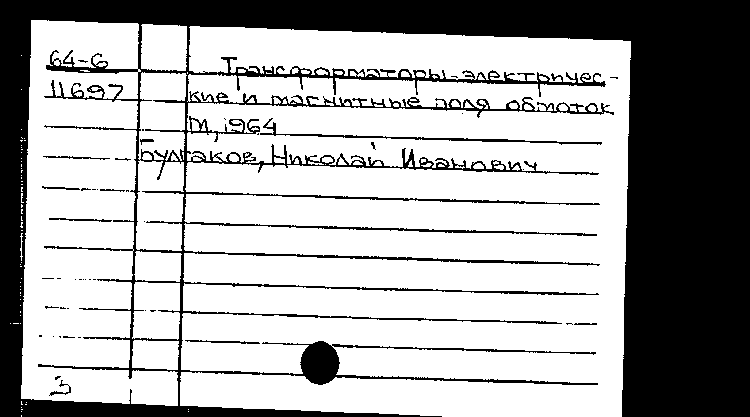 64-6
Трансформаторы электричес-
11697
кие и магнитные поля обмоток
М., 1964
Булгаков, Николай Иванович
3